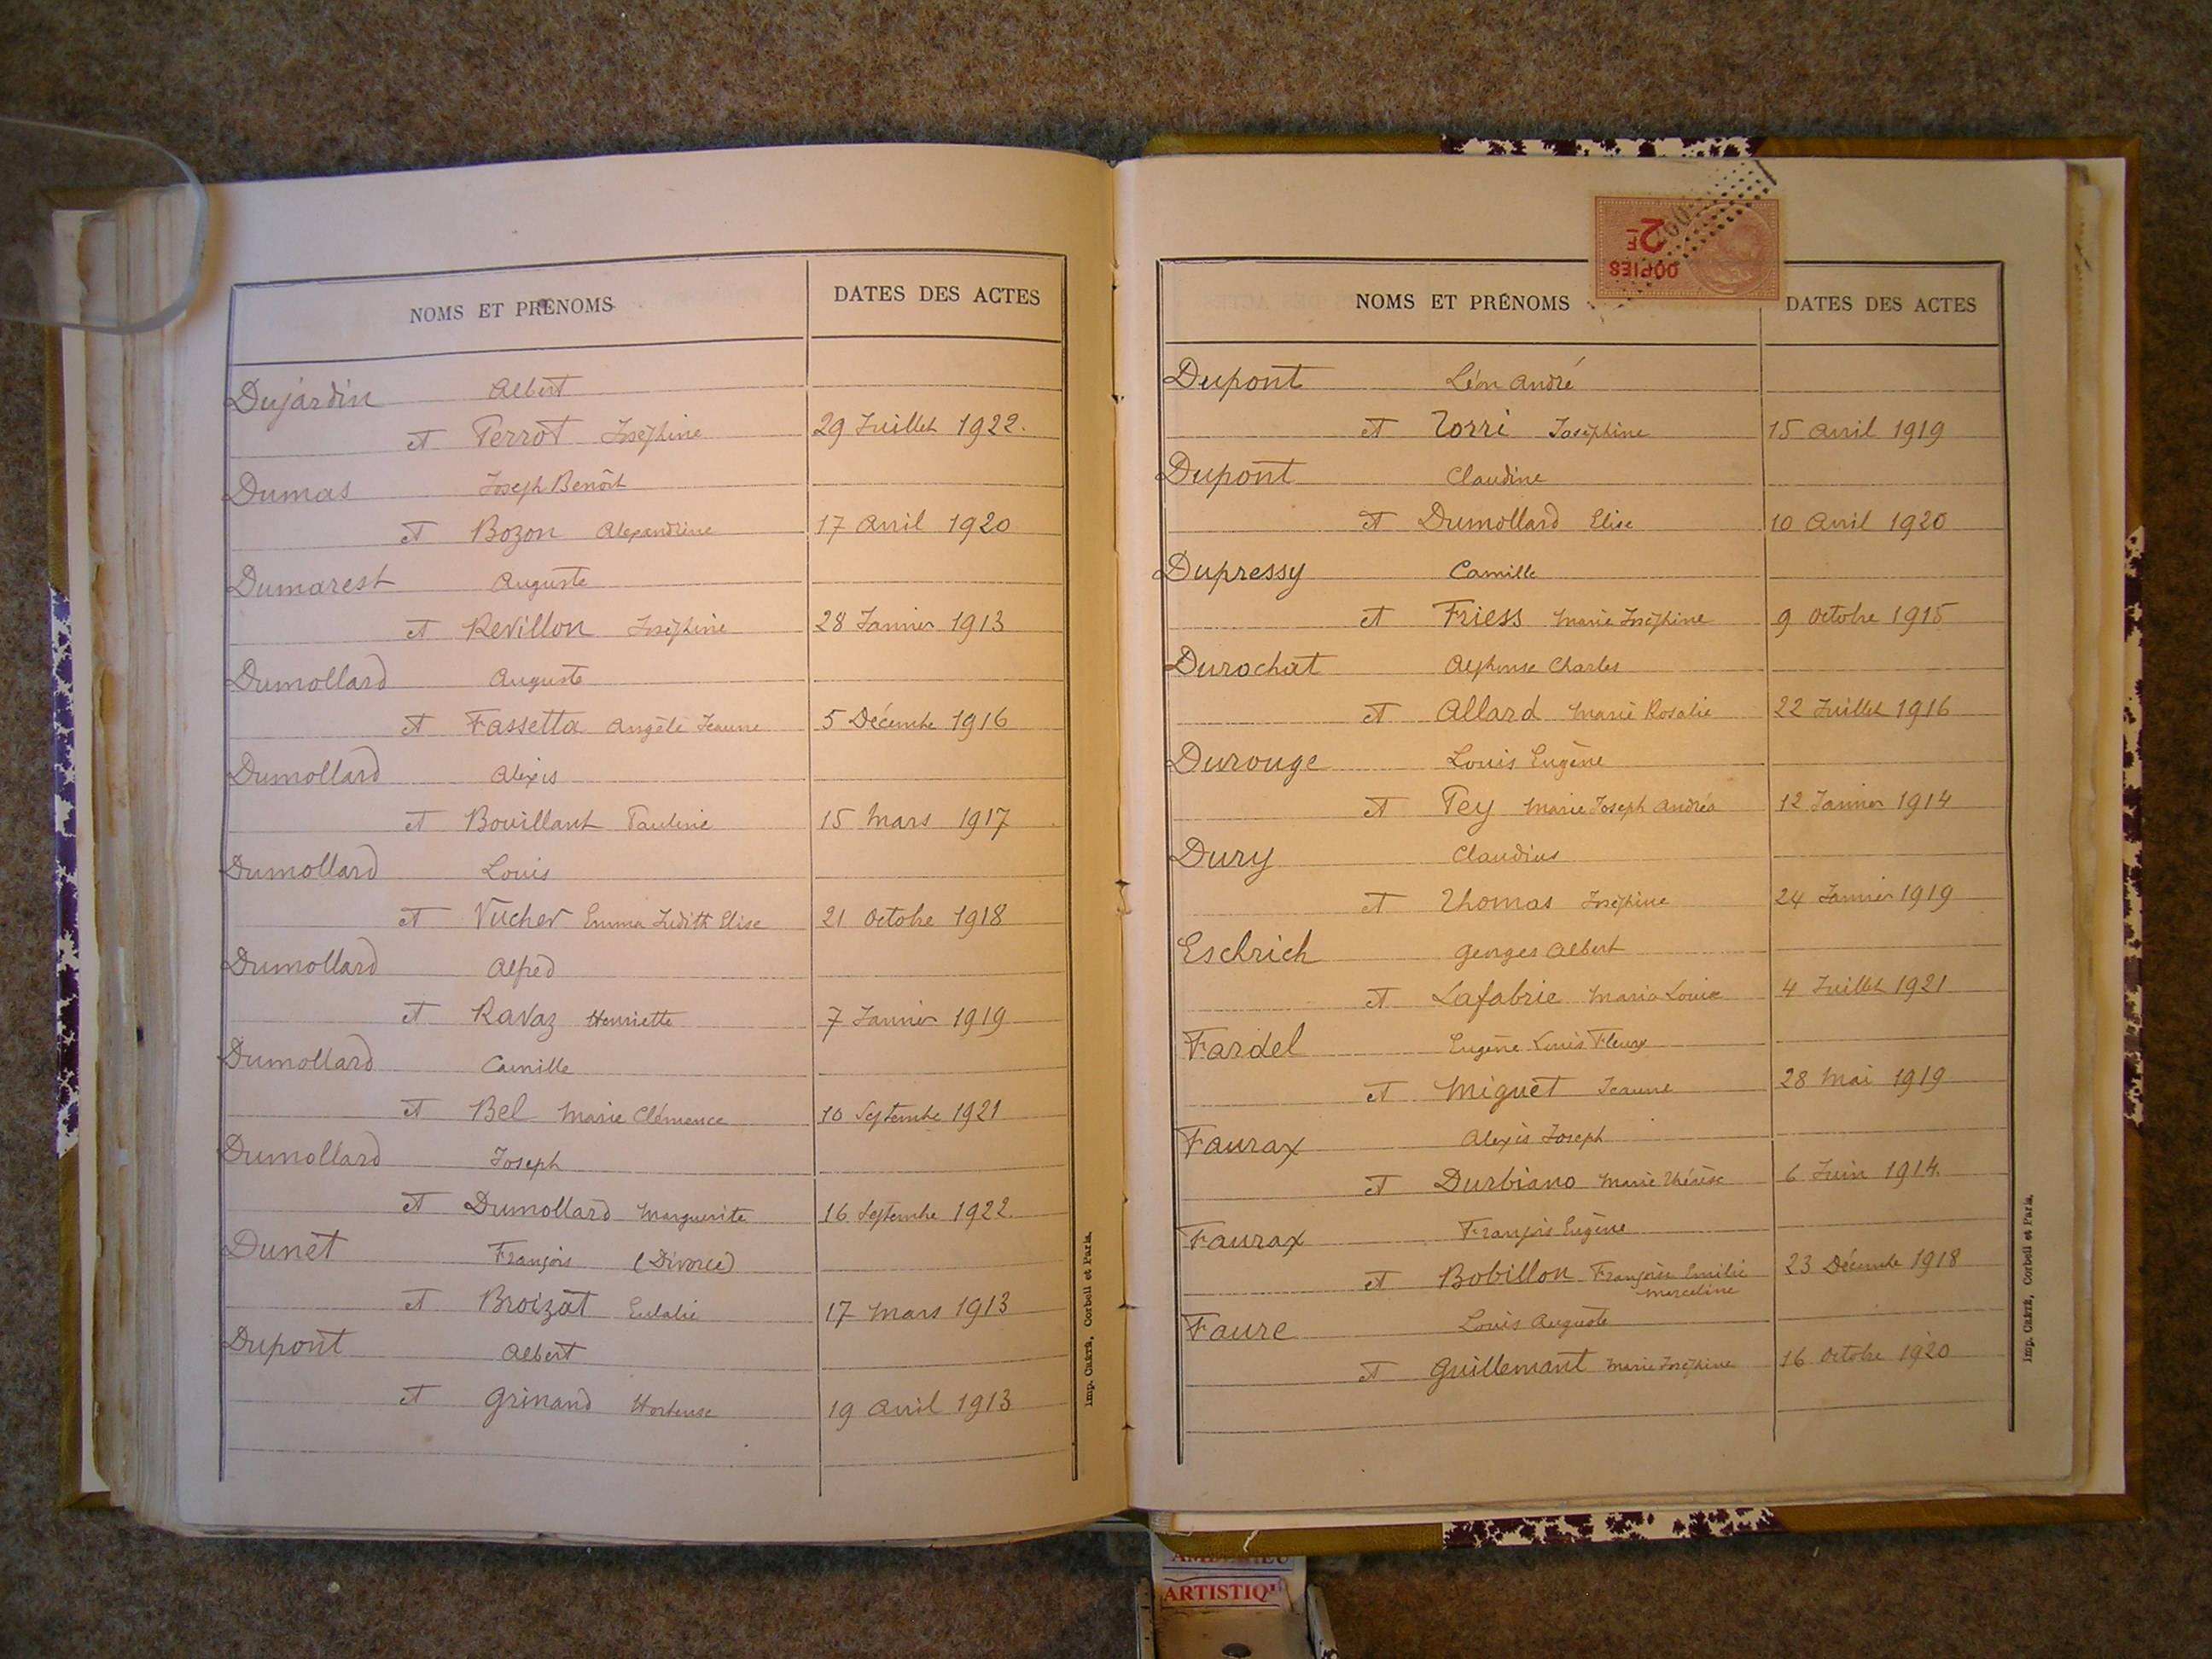 NOMS ET PRÉNOMS DATES DES ACTES
Dujardin Albert
et Perrot Joséphine 29 Juillet 1922.
Dumas Joseph Benoît
et Bozon Alexandrine 17 Avril 1920
Dumarest Auguste
et Revillon Joséphine 28 Janvier 1913
Dumollard Auguste
et Fassetta Angèle Jeanne 5 Décembre 1916
Dumollard Alexis
et Bouillant Pauline 15 Mars 1917
Dumollard Louis
et Vucher Emma Judith Elise 21 Octobre 1918
Dumollard Alfred
et Ravaz Henriette 7 Janvier 1919
Dumollard Camille
et Bel Marie Clémence 10 Septembre 1921
Dumollard Joseph
et Dumollard Marguerite 16 Septembre 1922.
Dunet François (Divorce)
et Broizat Eulalie 17 Mars 1913
Dupont Albert
et Grinand Hortense 19 Avril 1913
Imp. Crété, Corbeil et Paris.
2F
COPIES
NOMS ET PRÉNOMS DATES DES ACTES
Dupont Léon André
et Torri Joséphine 15 Avril 1919
Dupont Claudine
et Dumollard Elise 10 Avril 1920
Dupressy Camille
et Friess Marie Joséphine 9 Octobre 1915
Durochat Alphonse Charles
et Allard Marie Rosalie 22 Juillet 1916
Durouge Louis Eugène
et Pey Marie Joseph Andréa 12 Janvier 1914
Dury Claudius
et Thomas Joséphine 24 Janvier 1919
Eschrich Georges Albert
et Lafabrie Maria Louise 4 Juillet 1921
Fardel Eugène Louis Fleury
et Miguet Jeanne 28 Mai 1919
Faurax Alexis Joseph
et Durbiano Marie Thérèse 6 Juin 1914.
Faurax François Eugène
et Bobillon Françoise Emilie 23 Décembre 1918
Marceline
Faure Louis Auguste
et Guillemant Marie Joséphine 16 Octobre 1920
Imp. Crété, Corbeil et Paris.
ARTISTIQU